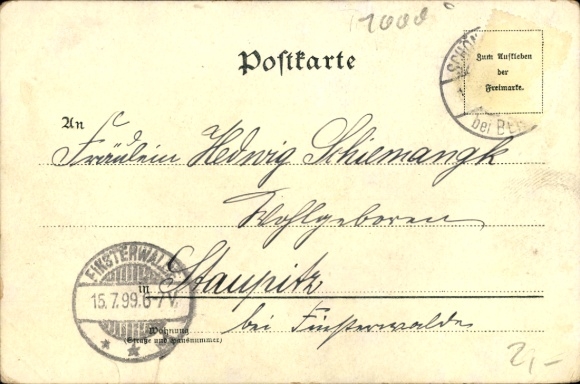 1000
Postkarte
Zum Aufkleben
der
Freimarke.
SCHÖN
bei BER
An
Fräulein Hedwig Schiemangk
Wohlgeboren
FINSTERWALDE
15.7.99.6-7V.
in Staupitz
bei Finsterwalde
Wohnung
(Straße und Hausnummer)
2,-